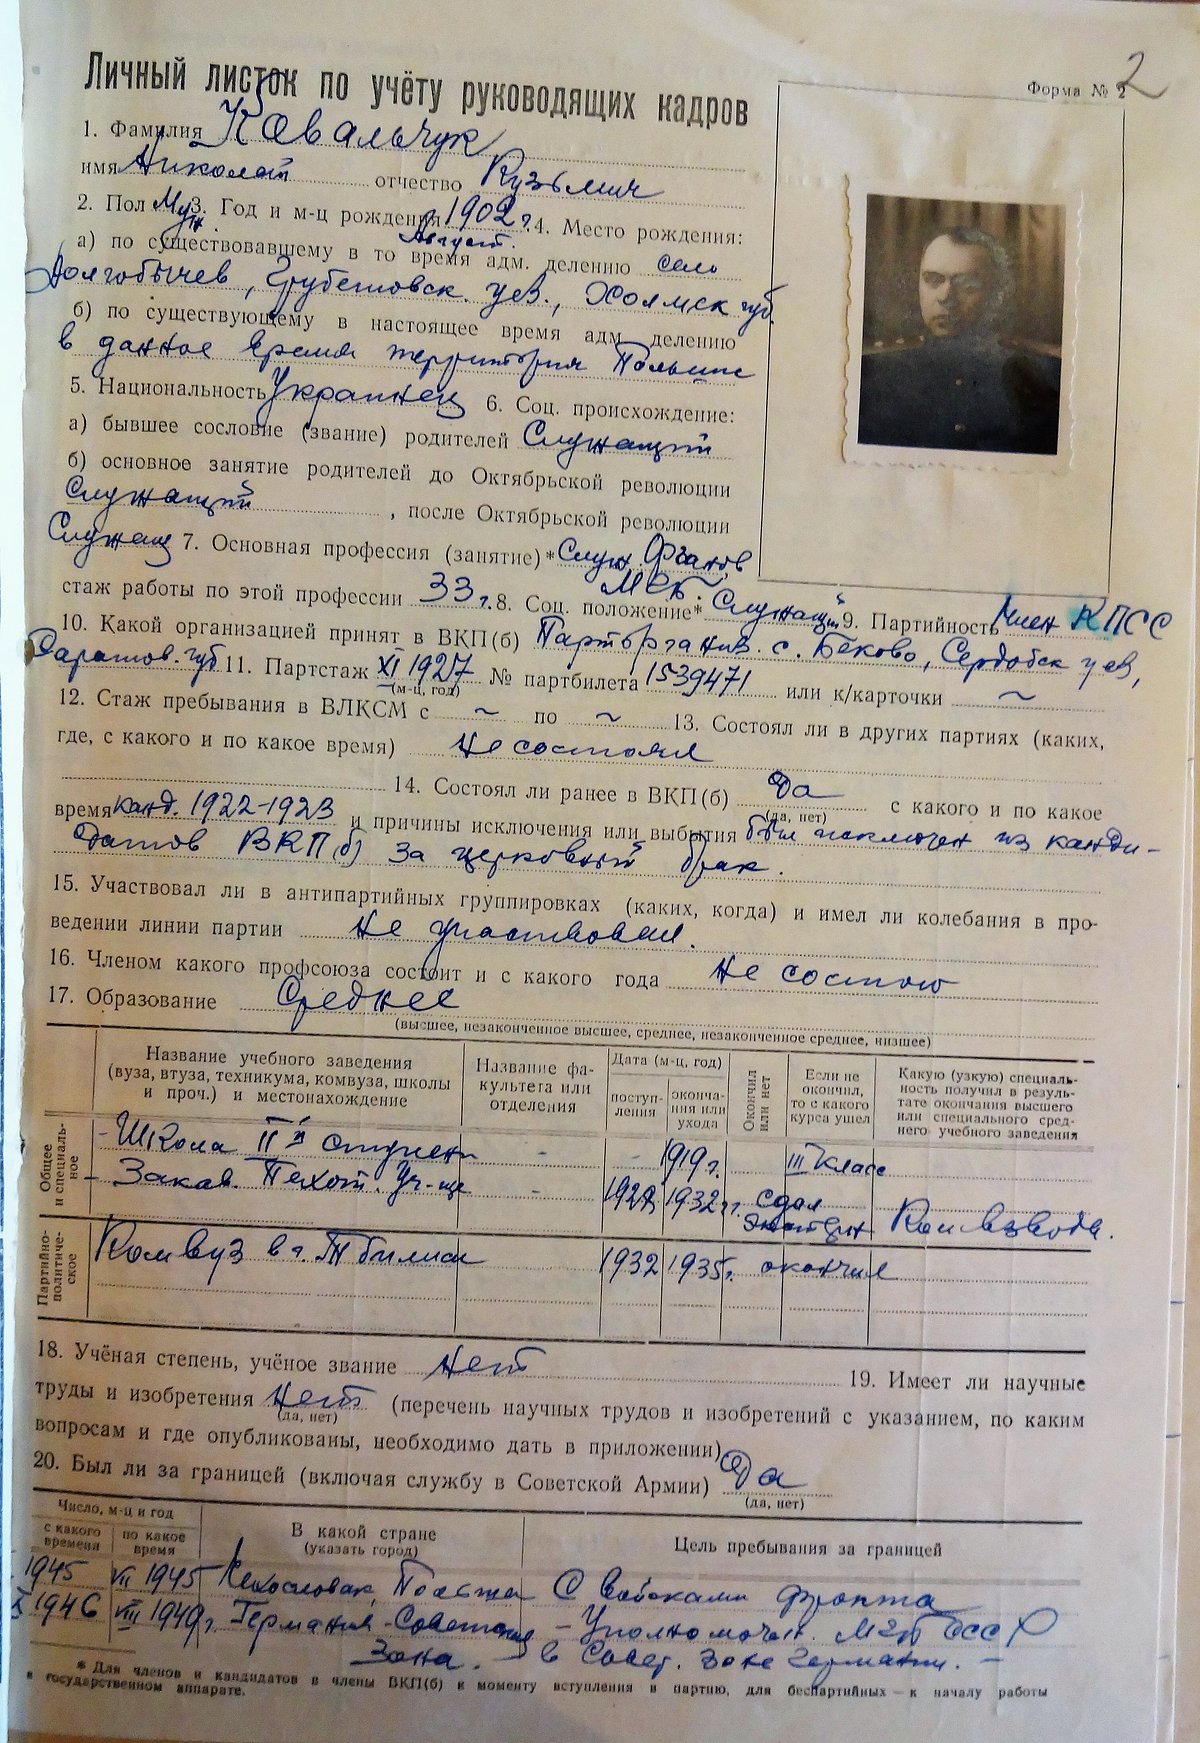 Форма № 2
2
Личный листок по учёту руководящих кадров
1. Фамилия Ковальчук
имя Николай отчество Кузьмич
2. Пол Муж. 3. Год и м-ц рождения 1902 г. 4. Место рождения:
Август.
а) по существовавшему в то время адм. делению село
Долгобычев, Грубешовск. уез., Холмск губ.
б) по существующему в настоящее время адм. делению
в данное время территория Польши
5. Национальность Украинец 6. Соц. происхождение:
а) бывшее сословие (звание) родителей Служащий
б) основное занятие родителей до Октябрьской революции
Служащий , после Октябрьской революции
Служащ 7. Основная профессия (занятие)* Служ. Органов
стаж работы по этой профессии 33 г. 8. Соц. положение* Служащий 9. Партийность Член КПСС
10. Какой организацией принят в ВКП(б) Парторганиз. с. Беково, Сердобск уез,
Саратов. губ 11. Партстаж XI 1927 № партбилета 1539471 или к/карточки ~
(м-ц, год)
12. Стаж пребывания в ВЛКСМ с ~ по ~ 13. Состоял ли в других партиях (каких,
где, с какого и по какое время) Не состоял
14. Состоял ли ранее в ВКП(б) Да с какого и по какое
(да, нет)
время канд. 1922-1923 и причины исключения или выбытия был исключен из канди-
датов ВКП(б) за церковный брак.
15. Участвовал ли в антипартийных группировках (каких, когда) и имел ли колебания в про-
ведении линии партии Не участвовал.
16. Членом какого профсоюза состоит и с какого года Не состою
17. Образование Среднее
(высшее, незаконченное высшее, среднее, незаконченное среднее, низшее)
Название учебного заведения (вуза, втуза, техникума, комвуза, школы и проч.) и местонахождение
Название факультета или отделения
Дата (м-ц, год)
поступ-ления
оконча-ния или ухода
Окончил или нет
Если не окончил, то с какого курса ушел
Какую (узкую) специаль-ность получил в резуль-тате окончания высшего или специального сред-него учебного заведения
Общее и специаль-ное
- Школа II й ступени - - 1919 г. III класс
- Закав. Пехот. Уч-ще - 1932 г. сдал экстерн Ком взвода.
Партийно-политиче-ское
Комвуз в г. Тбилиси 1932 1935 г. окончил
18. Учёная степень, учёное звание нет 19. Имеет ли научные
труды и изобретения нет (перечень научных трудов и изобретений с указанием, по каким
(да, нет)
вопросам и где опубликованы, необходимо дать в приложении)
20. Был ли за границей (включая службу в Советской Армии) Да
(да, нет)
Число, м-ц и год
с какого времени
по какое время
В какой стране
(указать город)
Цель пребывания за границей
1945 VII 1945 Чехословак, Польша С войсками фронта
1946 VIII 1949 г. Германия - Советская - Уполномочен. МГБ СССР
Зона. в Совет. Зоне Германии. -
* Для членов и кандидатов в члены ВКП(б) к моменту вступления в партию, для беспартийных — к началу работы
в государственном аппарате.